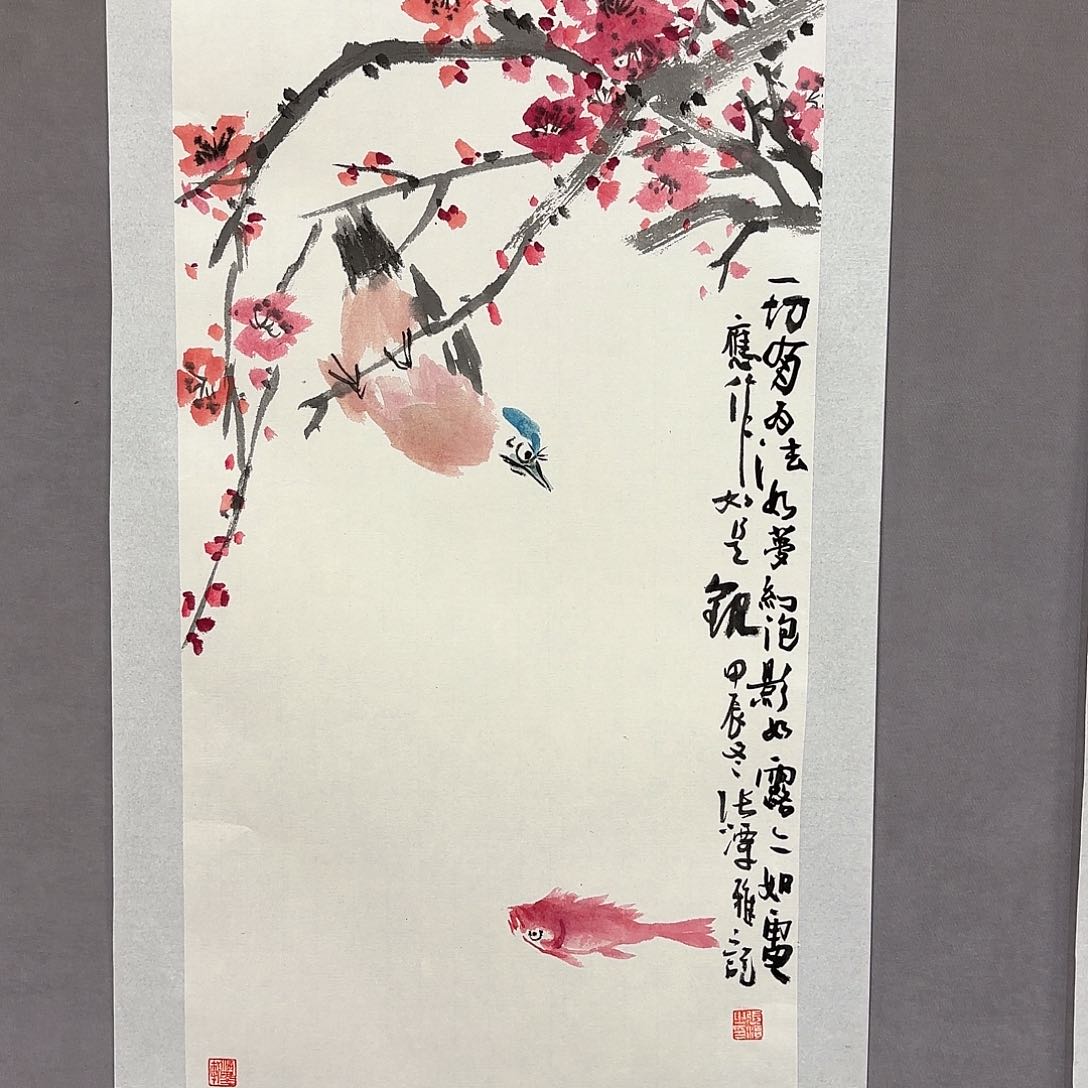 一切有为法如夢幻泡影如露亦如電
應作如是觀 甲辰冬 张 雅記